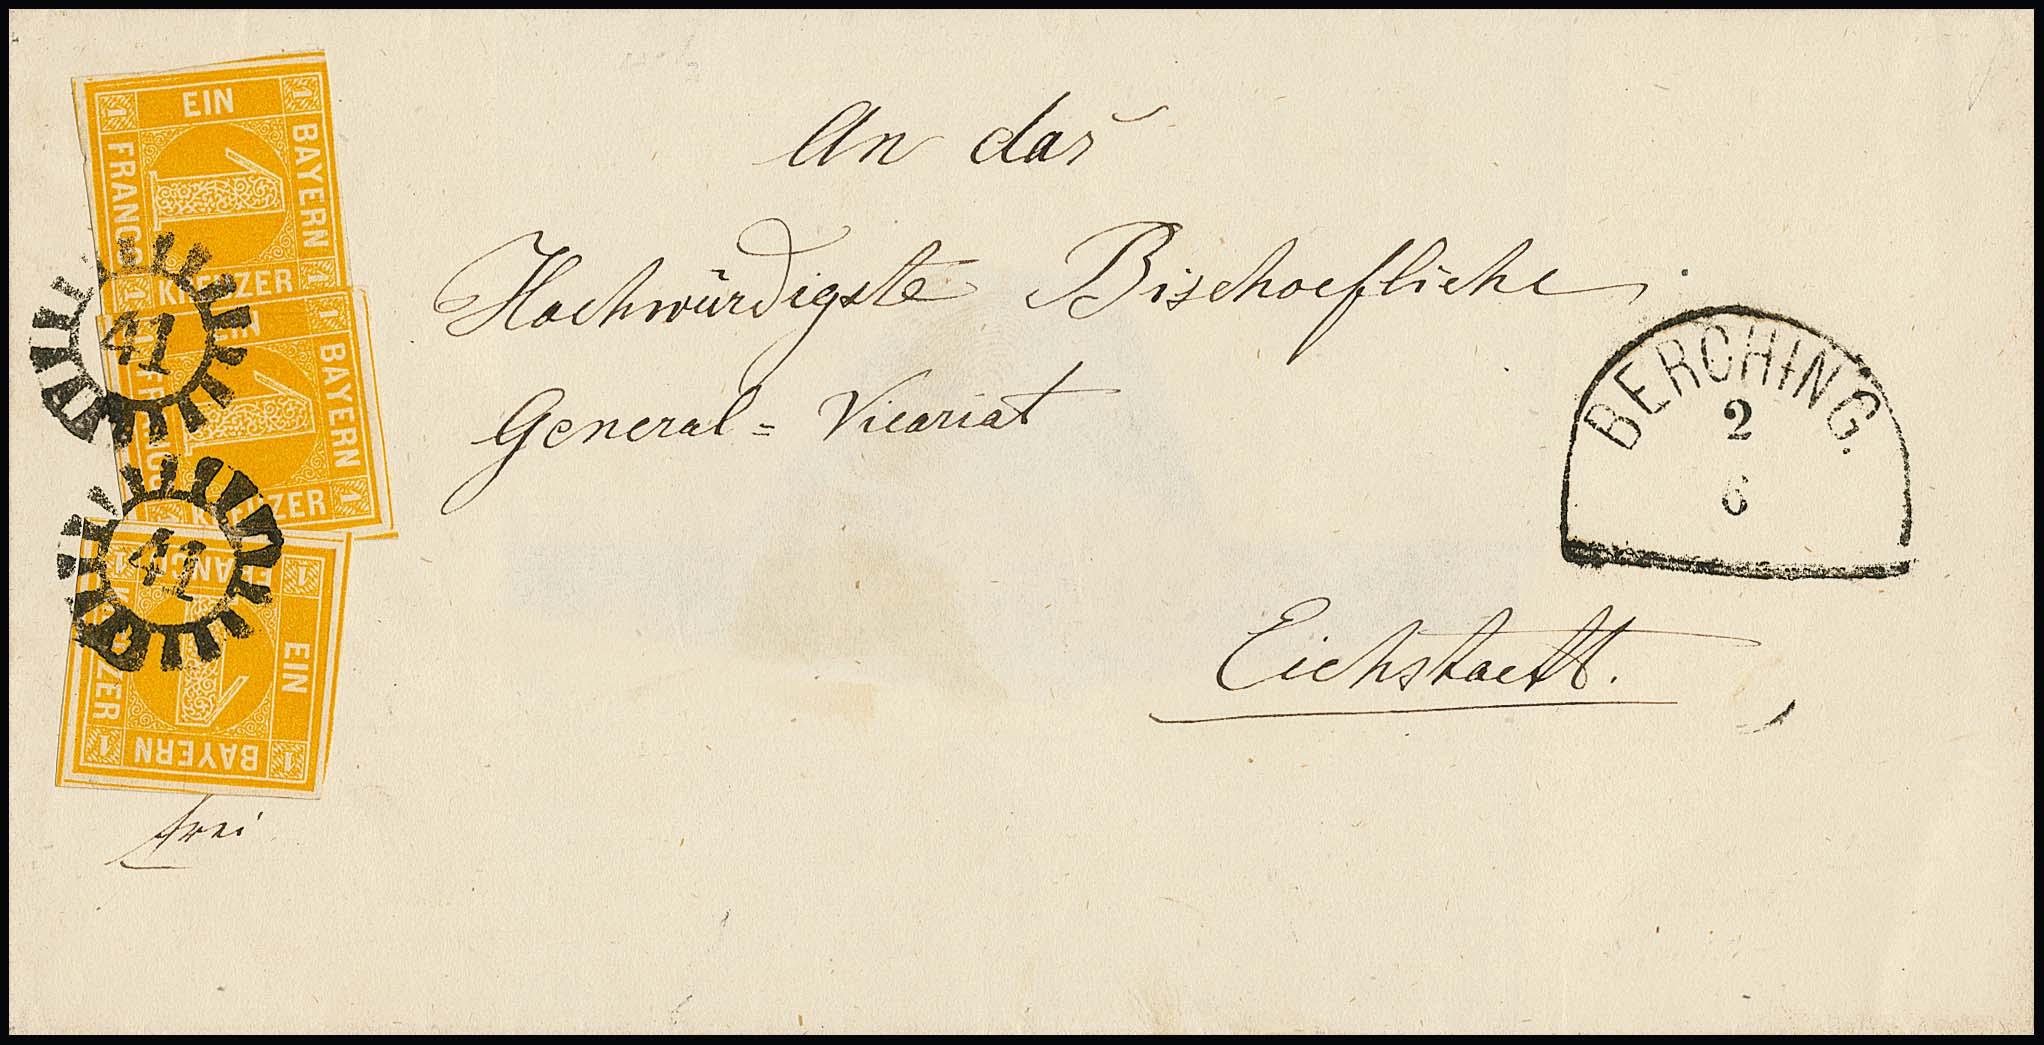 EIN
BAYERN
FRANCO
KREUZER
1 1 1 1
41
EIN
BAYERN
FRANCO
KREUZER
1 1 1
41
EIN
BAYERN
FRANCO
KREUZER
1 1 1 1
An das
Hochwürdigste Bischoefliche
General = Vicariat
Eichstaett.
frei
BERCHING.
2
6